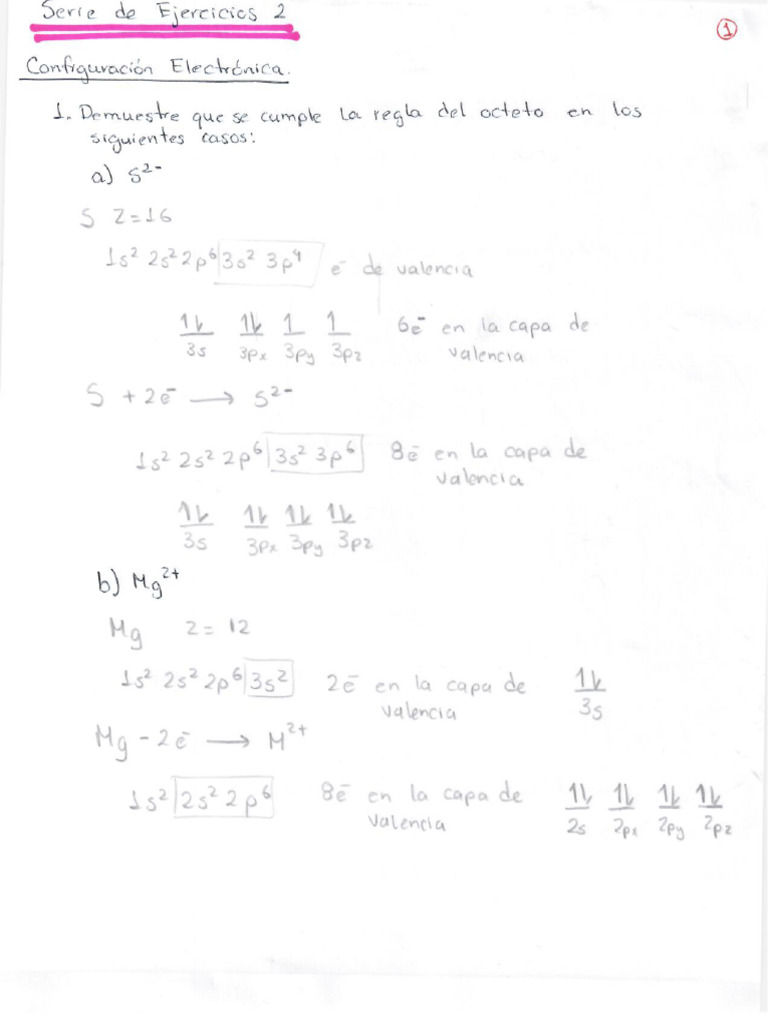 Serie de Ejercicios 2
1
Configuración Electrónica.
1. Demuestre que se cumple la regla del octeto en los
siguientes casos:
a) S²⁻
S Z=16
1s² 2s² 2p⁶ 3s² 3p⁴ e⁻ de valencia
1↿⇂ 1↿⇂ 1 1 6e⁻ en la capa de
3s 3px 3py 3pz valencia
S + 2e⁻ → S²⁻
1s² 2s² 2p⁶ 3s² 3p⁶ 8e⁻ en la capa de
valencia
1↿⇂ 1↿⇂ 1↿⇂ 1↿⇂
3s 3px 3py 3pz
b) Mg²⁺
Mg Z = 12
1s² 2s² 2p⁶ 3s² 2e⁻ en la capa de 1↿⇂
valencia 3s
Mg - 2e⁻ → M²⁺
1s² 2s² 2p⁶ 8e⁻ en la capa de 1↿⇂ 1↿⇂ 1↿⇂ 1↿⇂
valencia 2s 2px 2py 2pz